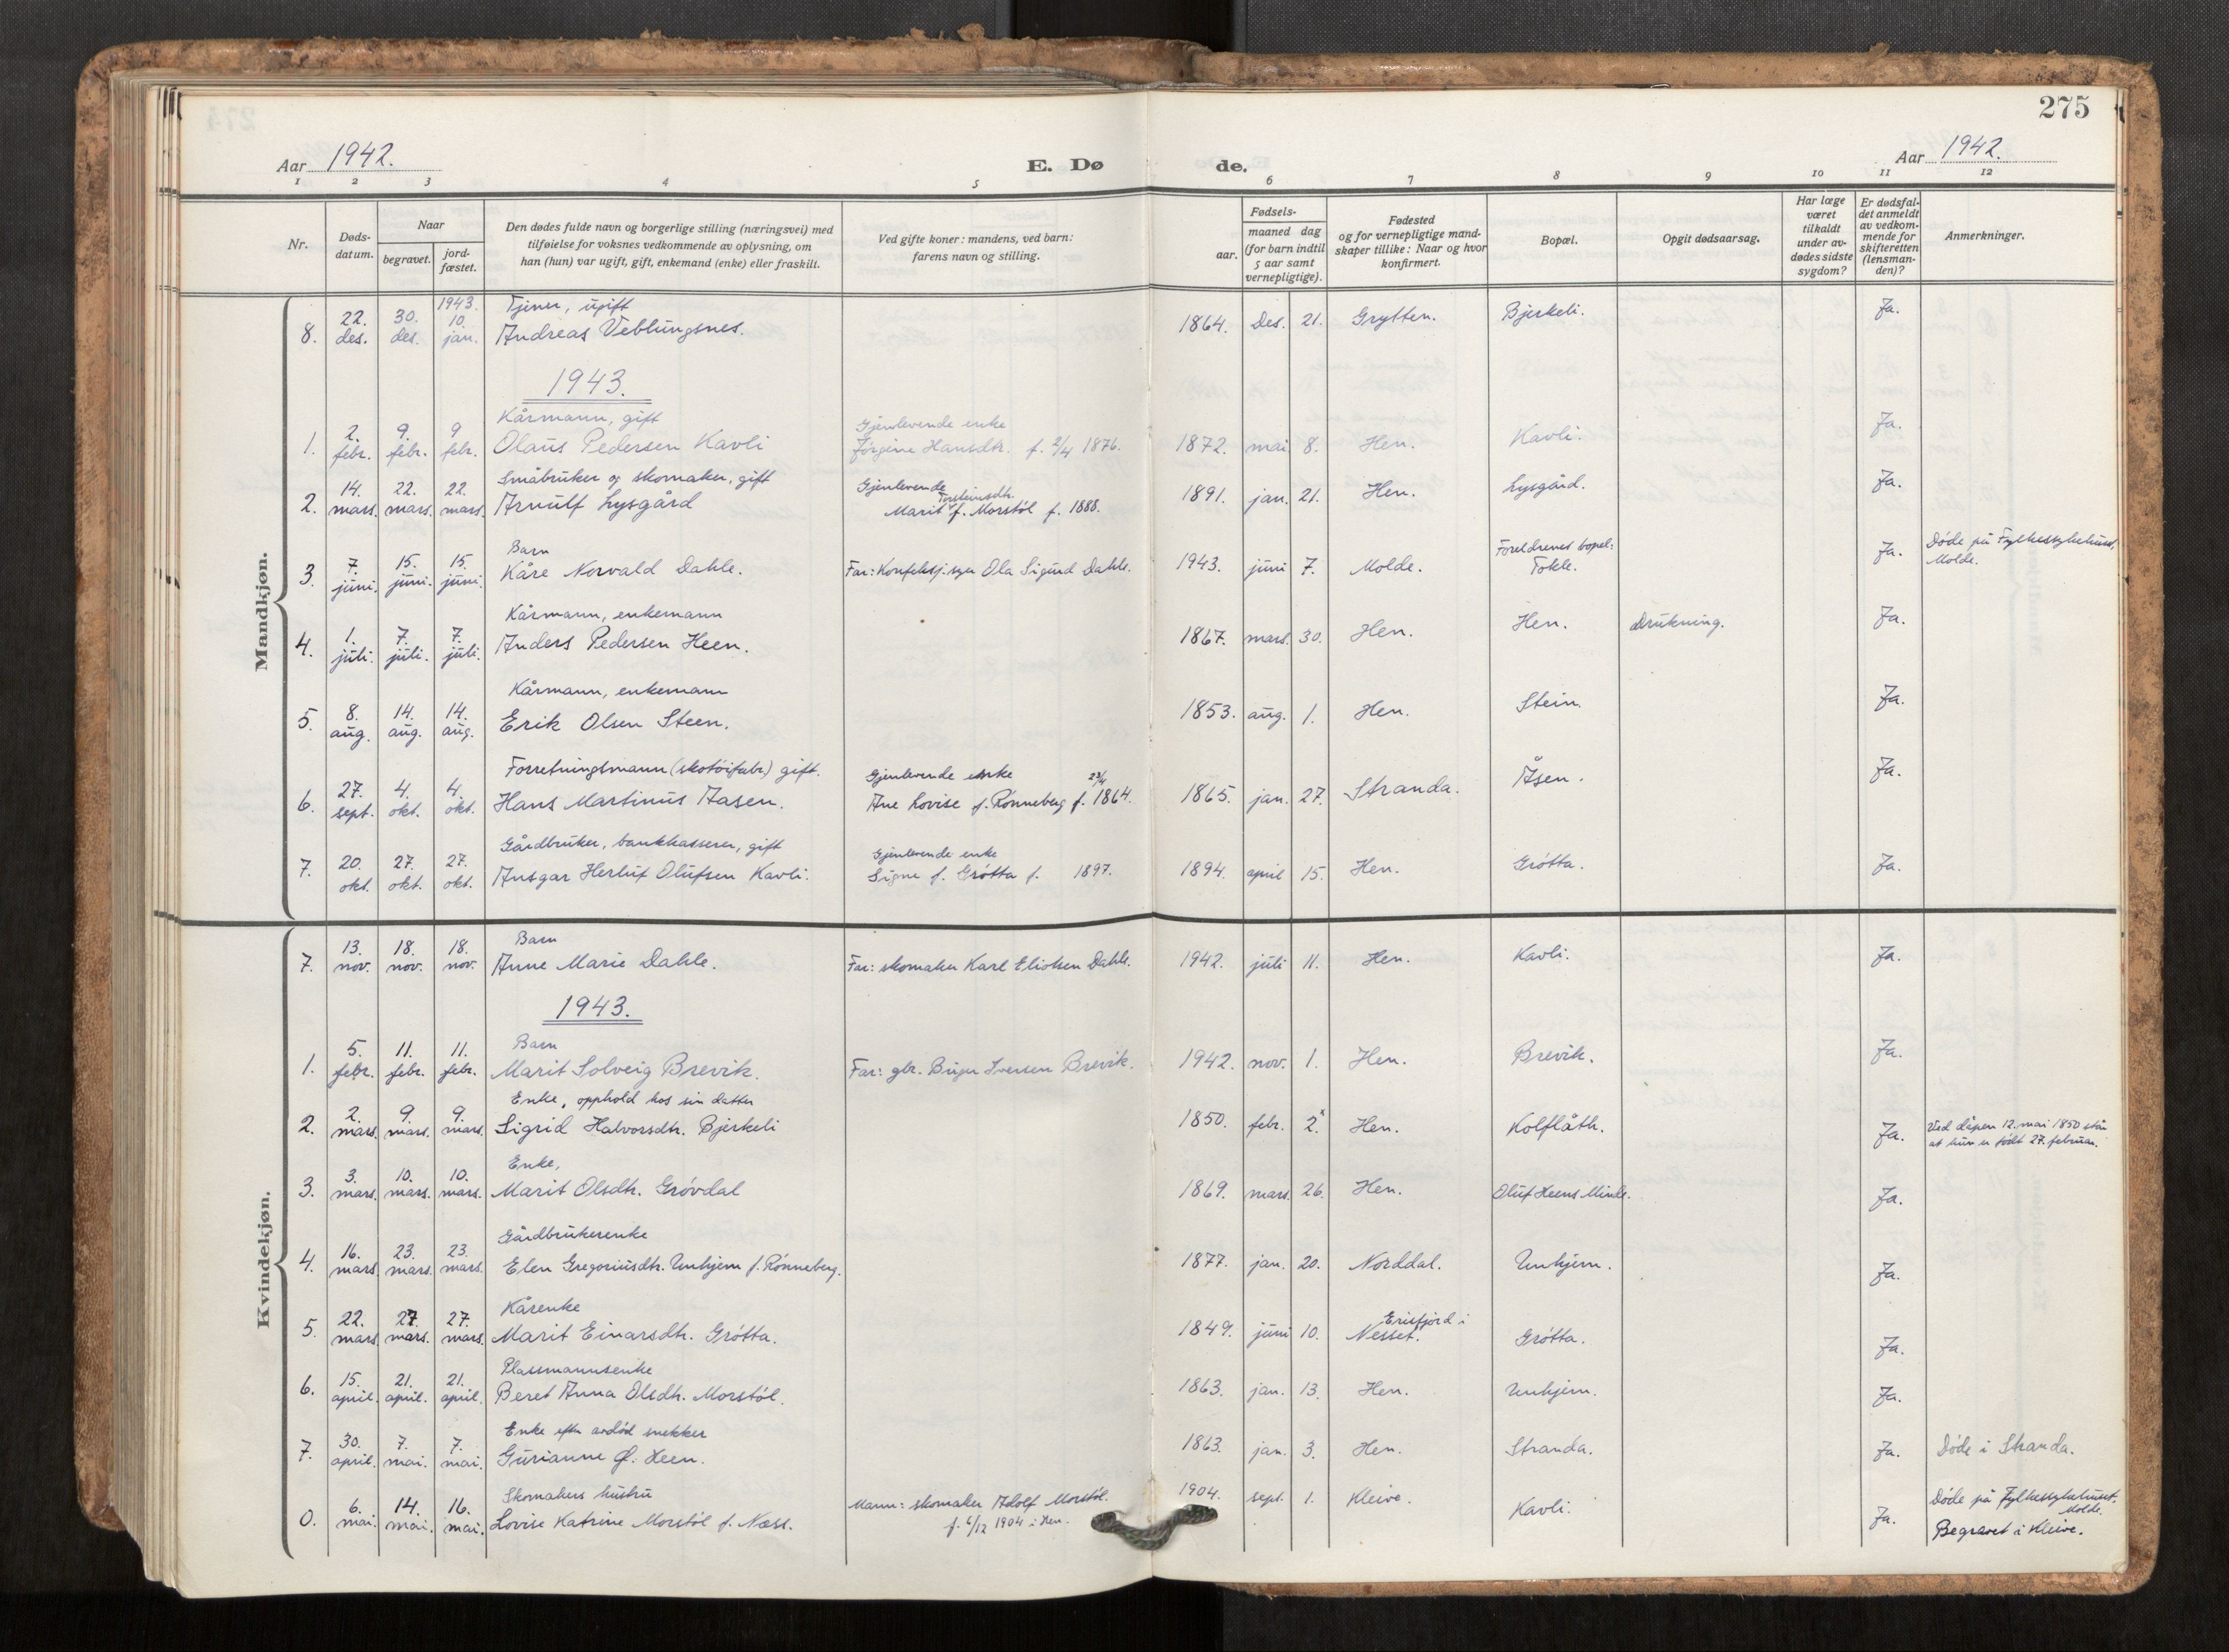 275
Aar 1942.
E. Dø de.
Aar 1942.
1 2 3 4 5 6 7 8 9 10 11 12
Nr.
Døds-
datum.
Naar
begravet.
jord-
fæstet.
Den dødes fulde navn og borgerlige stilling (næringsvei) med
tilføielse for voksnes vedkommende av oplysning, om
han (hun) var ugift, gift, enkemand (enke) eller fraskilt.
Ved gifte koner: mandens, ved barn:
farens navn og stilling.
Fødsels-
aar.
maaned dag
(for barn indtil
5 aar samt
vernepligtige).
Fødested
og for vernepligtige mand-
skaper tillike: Naar og hvor
konfirmert.
Bopæl.
Opgit dødsaarsag.
Har læge
været
tilkaldt
under av-
dødes sidste
sygdom?
Er dødsfal-
det anmeldt
av vedkom-
mende for
skifteretten
(lensman-
den)?
Anmerkninger.
Mandkjøn.
1943. Tjener, ugift
8. 22. des. 30. des. 10. jan. Andreas Veblungsnes. 1864. Des. 21. Grytten. Bjerkeli. Ja.
1943.
Kårmann, gift Gjenlevende enke
1. 2. febr. 9. febr. 9 febr. Olaus Pedersen Kavli Jørgine Hansdtr. f. 2/4 1876. 1872. mai 8. Hen. Kavli. Ja.
Småbruker og skomaker, gift Gjenlevende
2. 14. mars. 22. mars. 22. mars. Arnulf Lysgård Marit Torsteinsdtr. f. Morstøl f. 1888. 1891. jan. 21. Hen. Lysgård. Ja.
Barn Foreldrenes bopel:
3. 7. juni. 15. juni. 15. juni. Kåre Norvald Dahle. Far: Konfeksj.syer Ola Sigurd Dahle. 1943. juni 7. Molde. Tokle. Ja. Døde på Fylkessykehuset, Molde.
Kårmann, enkemann
4. 1. juli. 7. juli. 7. juli. Anders Pedersen Heen. 1867. mars. 30. Hen. Hen. Drukning. Ja.
Kårmann, enkemann
5. 8. aug. 14. aug. 14. aug. Erik Olsen Steen. 1853. aug. 1. Hen. Stein. Ja.
Forretningsmann (skotøifabr.) gift. Gjenlevende enke
6. 27. sept. 4. okt. 4. okt. Hans Martinus Aasen. Ane Lovise f. Rønneberg f. 23/4 1864. 1865. jan. 27. Stranda. Åsen. Ja.
Gårdbruker, bankkasserer, gift Gjenlevende enke
7. 20. okt. 27. okt. 27. okt. Ansgar Herluf Olufsen Kavli. Signe f. Grøtta f. 1897. 1894. april 15. Hen. Grøtta. Ja.
Kvindekjøn.
Barn
7. 13. nov. 18. nov. 18. nov. Anne Marie Dahle. Far: skomaker Karl Eliotsen Dahle. 1942. juli 11. Hen. Kavli. Ja.
1943.
Barn
1. 5. febr. 11. febr. 11. febr. Marit Solveig Brevik. Far: gbr. Birger Iversen Brevik. 1942. nov. 1. Hen. Brevik. Ja.
Enke, opphold hos sin datter
2. 2. mars. 9. mars. 9. mars. Sigrid Halvorsdtr. Bjerkeli 1850. febr. 2.x Hen. Kolflåth. Ja. Ved dåpen 12. mai 1850 står at hun er født 27. februar.
Enke,
3. 3. mars. 10. mars. 10. mars. Marit Olsdtr. Grøvdal 1869. mars. 26. Hen. Oluf Heens Minde. Ja.
Gårdbrukerenke
4. 16. mars. 23. mars. 23. mars. Elen Gregoriusdtr. Unhjem f. Rønneberg. 1877. jan. 20. Norddal. Unhjem. Ja.
Kårenke Erisfjord i
5. 22. mars. 27. mars. 27. mars. Marit Einarsdtr. Grøtta. 1849. juni 10. Nesset. Grøtta. Ja.
Plassmannsenke
6. 15. april. 21. april. 21. april. Beret Anna Olsdtr. Morstøl. 1863. jan. 13. Hen. Unhjem. Ja.
Enke efter avdød snekker
7. 30. april. 7. mai. 7. mai. Gurianne Ø. Heen. 1863. jan. 3. Hen. Stranda. Ja. Døde i Stranda.
Skomakers hustru Mann: skomaker Adolf Morstøl.
0. 6. mai. 14. mai. 16. mai. Lovise Katrine Morstøl f. Næss. f. 6/12 1904 i Hen. 1904. sept. 1. Kleive. Kavli. Ja. Døde på Fylkessykehuset. Molde.
Begravet i Kleive.